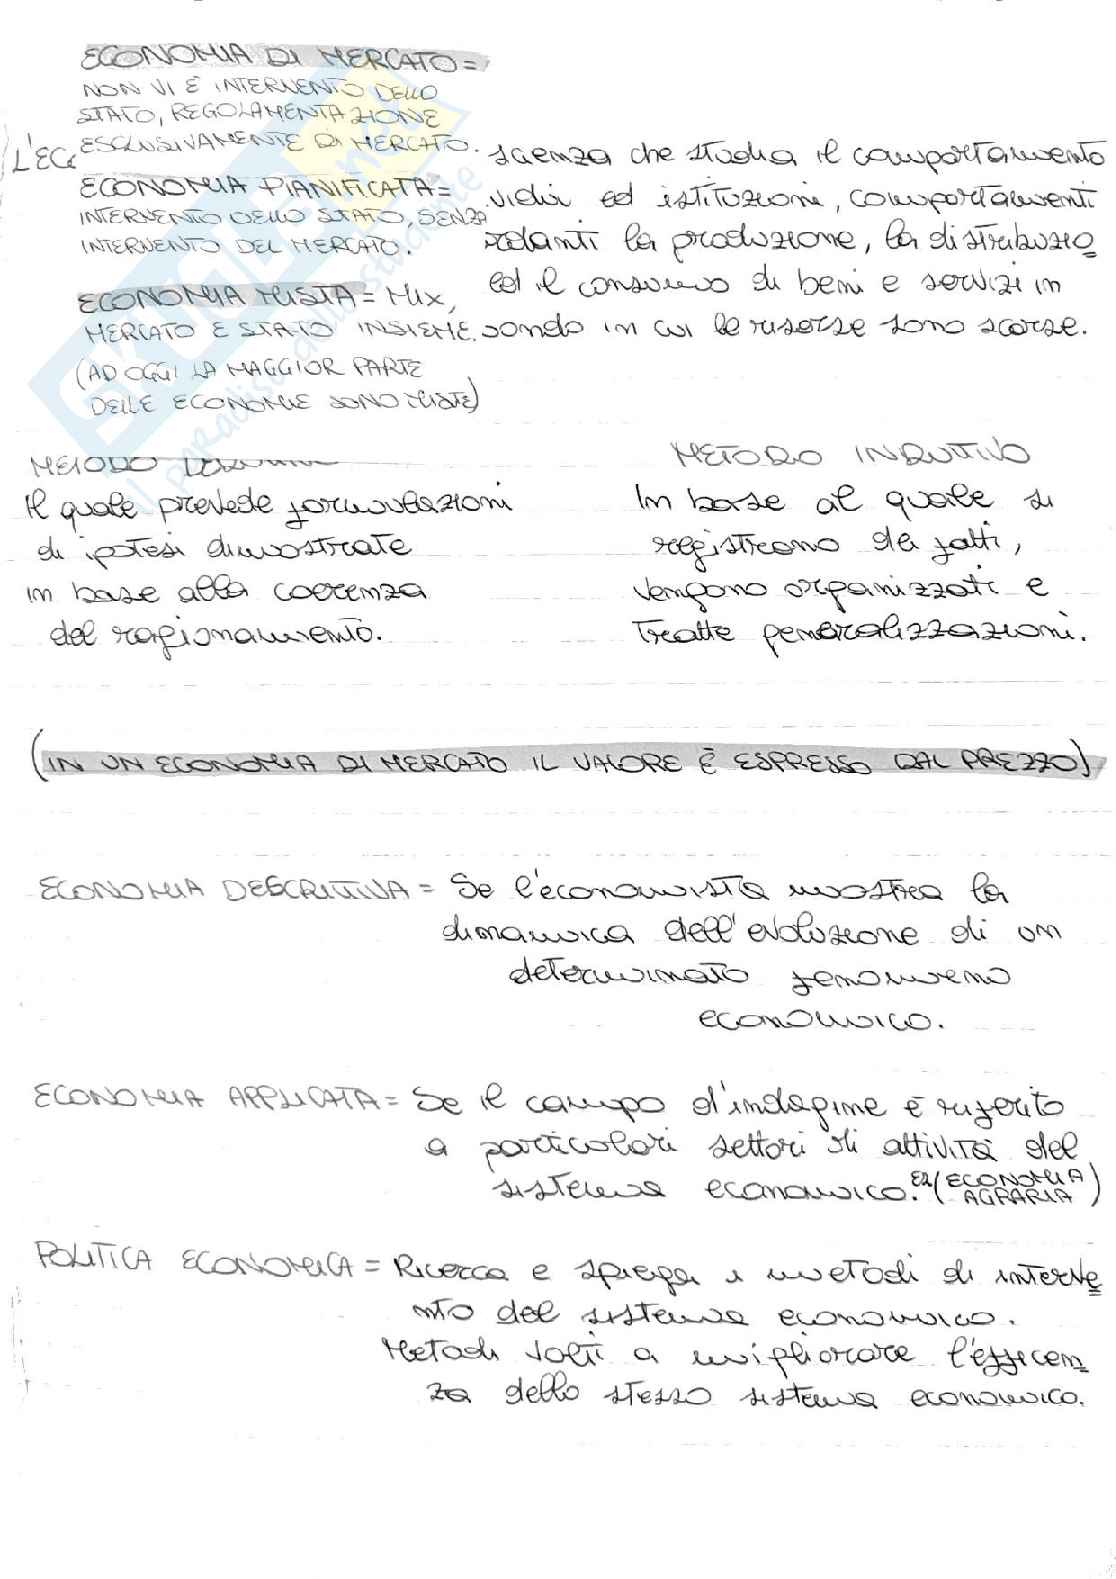 ECONOMIA DI MERCATO =
NON VI È INTERVENTO DELLO
STATO, REGOLAMENTAZIONE
ESCLUSIVAMENTE DI MERCATO.
ECONOMIA PIANIFICATA =
INTERVENTO DELLO STATO, SENZA
INTERVENTO DEL MERCATO.
ECONOMIA MISTA = MIX,
MERCATO E STATO INSIEME.
(AD OGGI LA MAGGIOR PARTE
DELLE ECONOMIE SONO MISTE)
L'EC
scienza che studia il comportamento
vidui ed istituzioni, comportamenti
rdanti la produzione, la distribuzio
ed il consumo di beni e servizi in
ondo in cui le risorse sono scarse.
METODO
Il quale prevede formulazioni
di ipotesi dimostrate
in base alla coerenza
del ragionamento.
METODO INDUTTIVO
In base al quale si
registrano dei fatti,
vengono organizzati e
tratte generalizzazioni.
(IN UN ECONOMIA DI MERCATO IL VALORE È ESPRESSO DAL PREZZO)
ECONOMIA DESCRITTIVA = Se l'economista mostra la
dinamica dell'evoluzione di un
determinato fenomeno
economico.
ECONOMIA APPLICATA = Se il campo d'indagine è riferito
a particolari settori di attività del
sistema economico. ES (ECONOMIA
AGRARIA)
POLITICA ECONOMICA = Ricerca e spiega i metodi di interve
nto del sistema economico.
Metodi volti a migliorare l'efficen
za dello stesso sistema economico.
SKUOLA.net
il paradiso dello studente